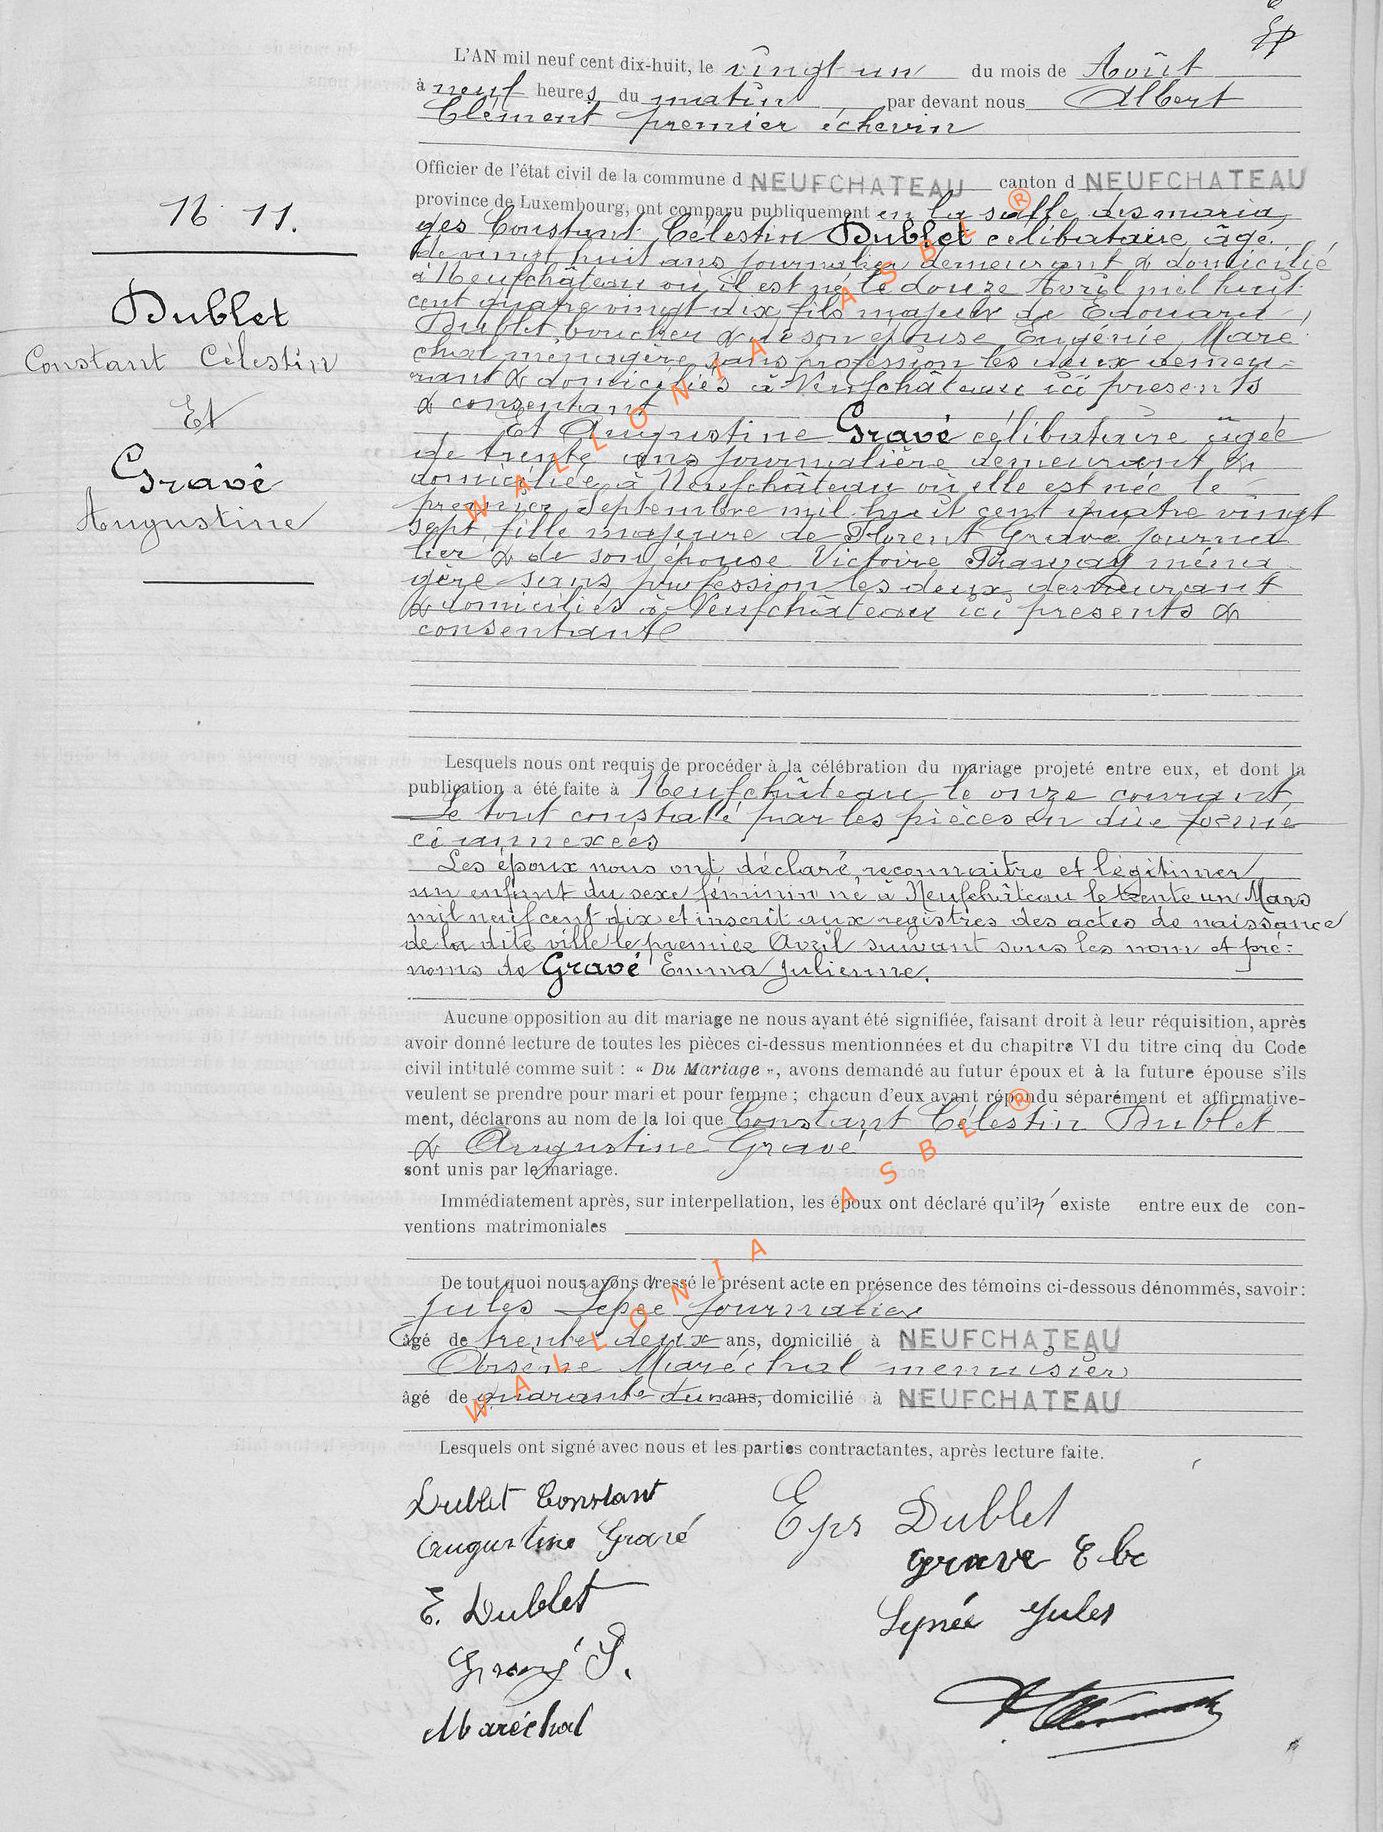 L'AN mil neuf cent dix-huit, le vingt un du mois de Août
à neuf heures du matin par devant nous Albert
Clément premier échevin
Officier de l'état civil de la commune d NEUFCHATEAU canton d NEUFCHATEAU
province de Luxembourg, ont comparu publiquement en la salle des maria
ges Constant Célestin Dublet célibataire âgé
de vingt huit ans journalier demeurant & domicilié
à Neufchâteau où il est né le douze Avril mil huit
cent quatre vingt dix fils majeur de Edouard
Dublet boucher & de son épouse Eugénie Maré
chal ménagère sans profession les deux demeu-
rant & domiciliés à Neufchâteau ici présents
& consentant
Et Augustine Gravé célibataire âgée
de trente ans journalière demeurant &
domiciliée à Neufchâteau où elle est née le
premier Septembre mil huit cent quatre vingt
sept, fille majeure de Florent Gravé journa
lier & de son épouse Victoire ména
gère sans profession les deux demeurant
& domiciliés à Neufchâteau ici présents &
consentant
N 11.
Dublet
Constant Célestin
Et
Gravé
Augustine
Lesquels nous ont requis de procéder à la célébration du mariage projeté entre eux, et dont la
publication a été faite à Neufchâteau le onze courant
Le tout constaté par les pièces en due forme
ci annexées
Les époux nous ont déclaré reconnaître et légitimer
un enfant du sexe féminin né à Neufchâteau le trente un Mars
mil neuf cent dix et inscrit aux registres des actes de naissance
de la dite ville le premier Avril suivant sous les nom et pré-
noms de Gravé Emma Julienne.
Aucune opposition au dit mariage ne nous ayant été signifiée, faisant droit à leur réquisition, après
avoir donné lecture de toutes les pièces ci-dessus mentionnées et du chapitre VI du titre cinq du Code
civil intitulé comme suit : « Du Mariage », avons demandé au futur époux et à la future épouse s'ils
veulent se prendre pour mari et pour femme ; chacun d'eux ayant répondu séparément et affirmative-
ment, déclarons au nom de la loi que Constant Célestin Dublet
& Augustine Gravé
sont unis par le mariage.
Immédiatement après, sur interpellation, les époux ont déclaré qu'il n'existe entre eux de con-
ventions matrimoniales
De tout quoi nous avons dressé le présent acte en présence des témoins ci-dessous dénommés, savoir :
Jules journalier
âgé de trente deux ans, domicilié à NEUFCHATEAU
Arsène Maréchal menuisier
âgé de quarante ans, domicilié à NEUFCHATEAU
Lesquels ont signé avec nous et les parties contractantes, après lecture faite.
Dublet Constant
Augustine Gravé
E. Dublet
Maréchal
Eps Dublet
Grave
Jules
WALLONIA ASBL ®
WALLONIA ASBL ®